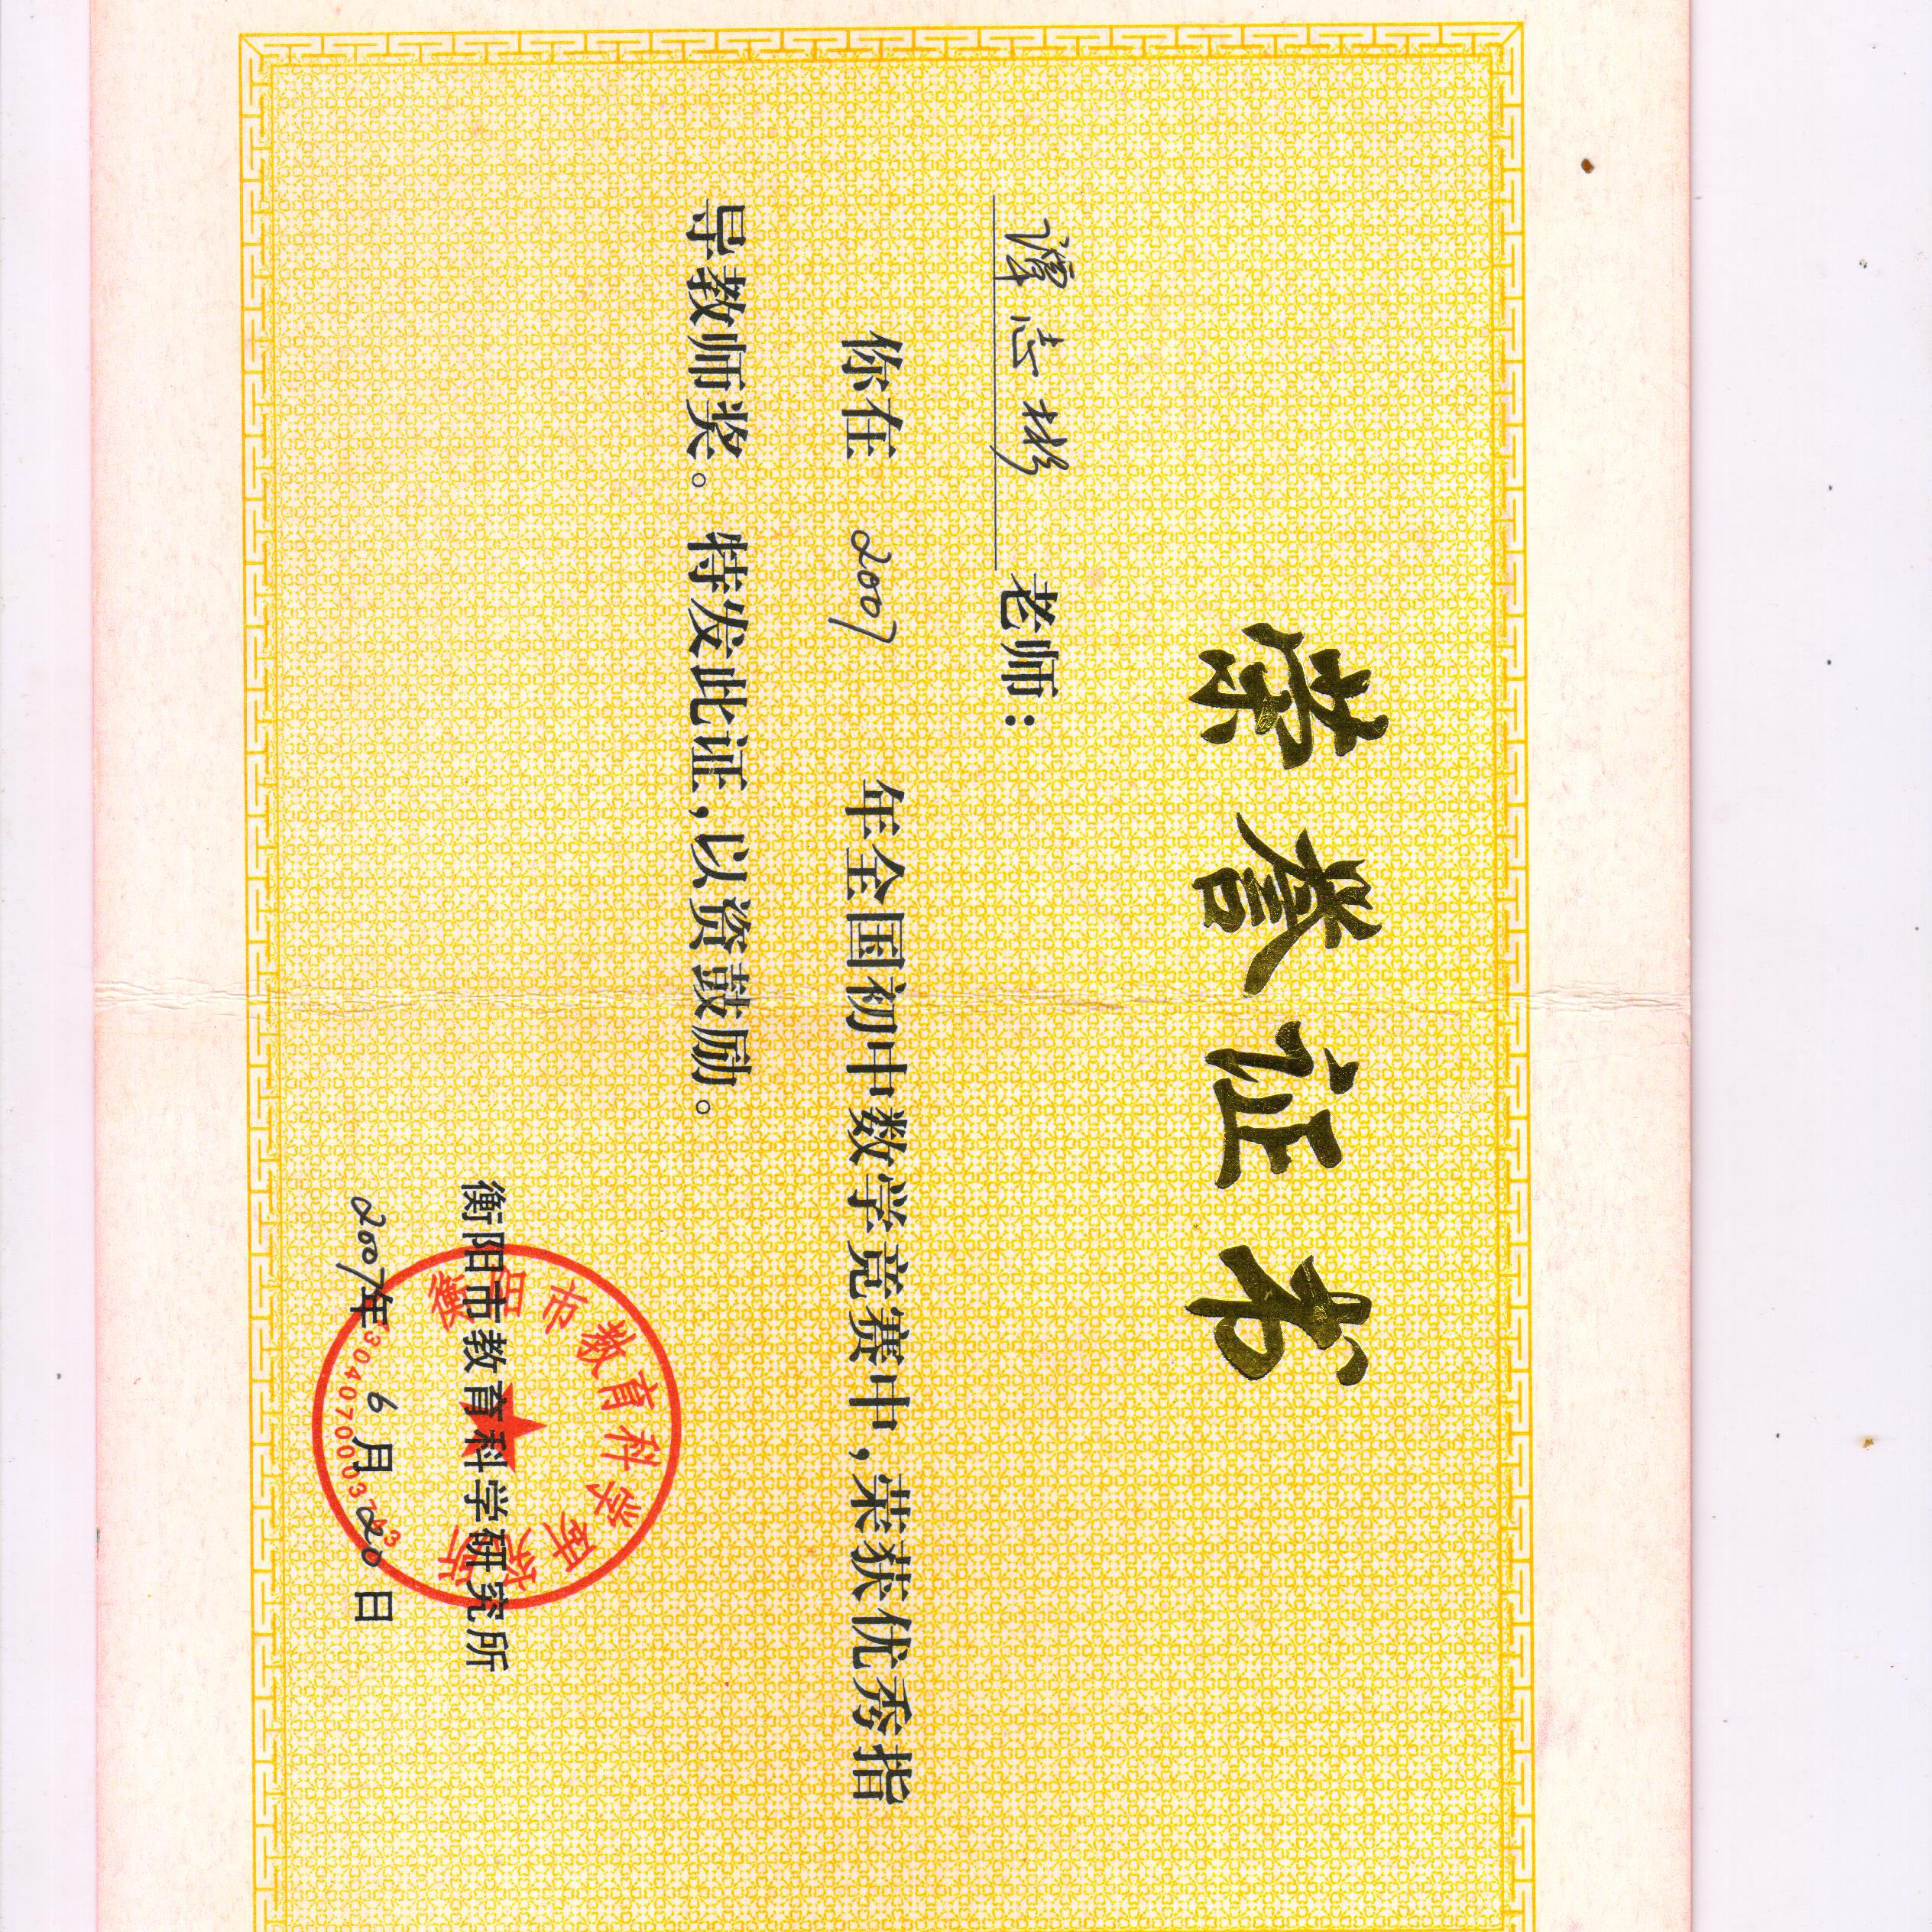 荣誉证书
谭志彬 老师：
你在 2007 年全国初中数学竞赛中，荣获优秀指
导教师奖。特发此证，以资鼓励。
衡阳市教育科学研究所
2007年 6 月 20 日
衡阳市教育科学研究所